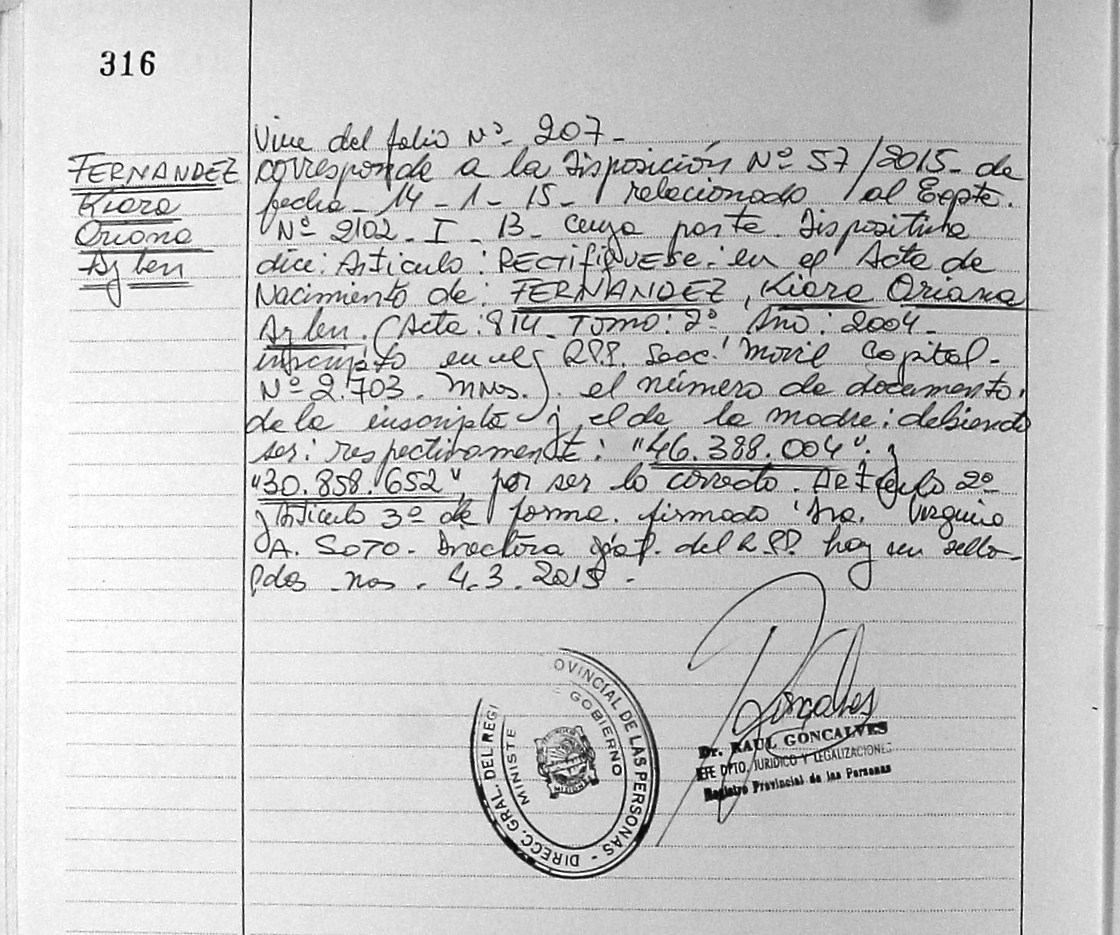 316
FERNANDEZ
Kiara
Oriana
Aylen
Viene del folio Nº 207-
corresponde a la Disposición Nº 57/2015- de
fecha 14-1-15- relacionado al Expte.
Nº 2102-I-13- cuya parte Dispositiva
dice: Articulo: RECTIFIQUESE: en el Acta de
Nacimiento de: FERNANDEZ, Kiara Oriana
Aylen. (Acta: 814- Tomo: 2º Año: 2004-
inscripto en el RPP. Secc. Movil Capital-
Nº 2.703. Mnes.). el número de documento
de la inscripta y el de la madre: debiendo
ser: respectivamente: "46.388.004" y
"30.858.652" por ser lo correcto. Artículo 2º
y Artículo 3º de forma. firmado Dra. Virginia
A. SOTO- Directora gral. del R.P.P. hoy en sello
Pdas 4.3.2015-
DIRECC. GRAL. DEL REGI OVINCIAL DE LAS PERSONAS -
MINISTE E GOBIERNO
MISION
Goncalves
Dr. RAUL GONCALVES
JEFE DPTO. JURIDICO Y LEGALIZACIONES
Registro Provincial de las Personas